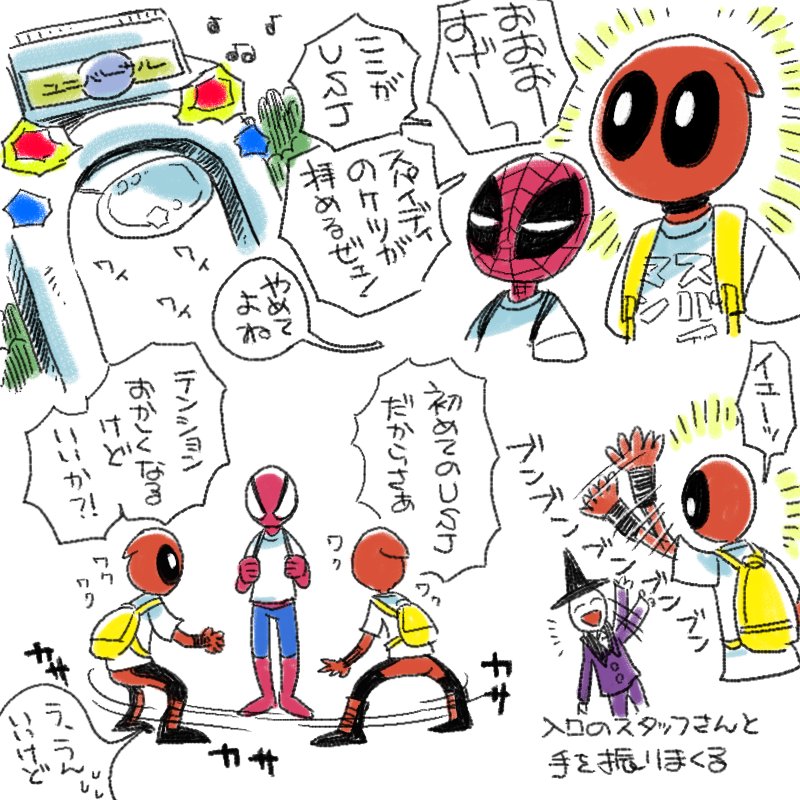 おおおー
すげーっ
ここが
USJ
スパイディ
のケツが
拝めるぜェ!
やめて
よね
ユニバーサル
ワイ
ワイ
ワイ
スパイディ
マン
初めてのUSJ
だからさぁ
テンション
おかしくなる
けど
いいか?!
ワクワク
ワクワク
カサ
カサ
カサ
う、うん
いいけど
イエーッ
ブンブンブンブンブンブン
入口のスタッフさんと
手を振りまくる